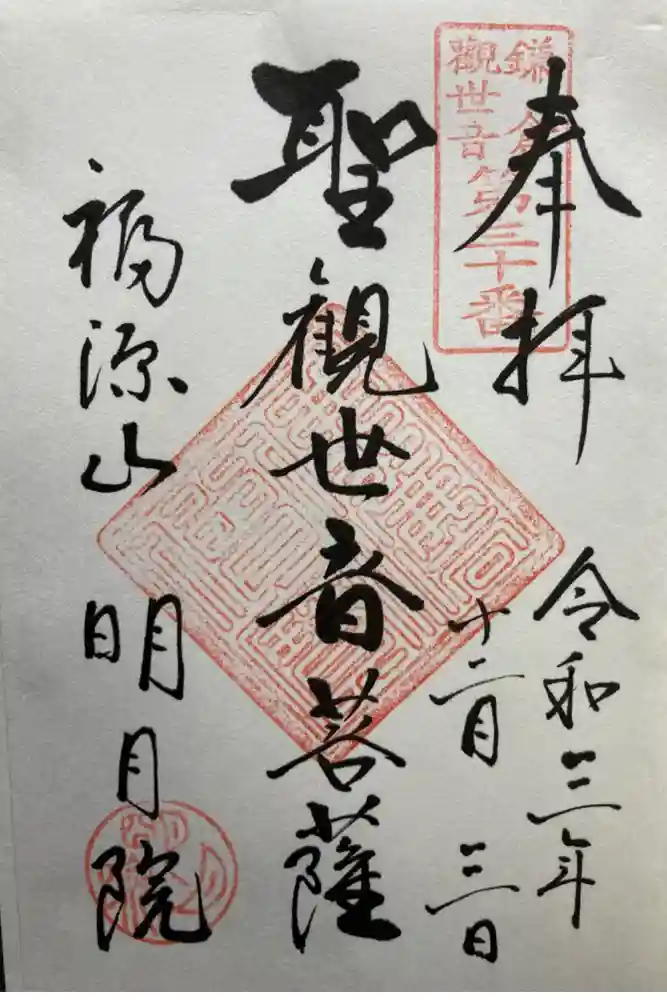 奉拝
鎌倉
觀世音第三十番
令和三年
十二月三日
聖觀世音菩薩
福源山
明月院